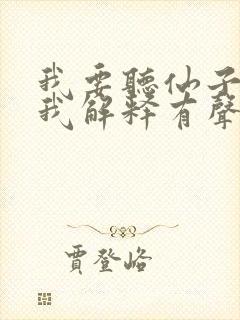 我要聽仙子
我解释有聲
賈登峪